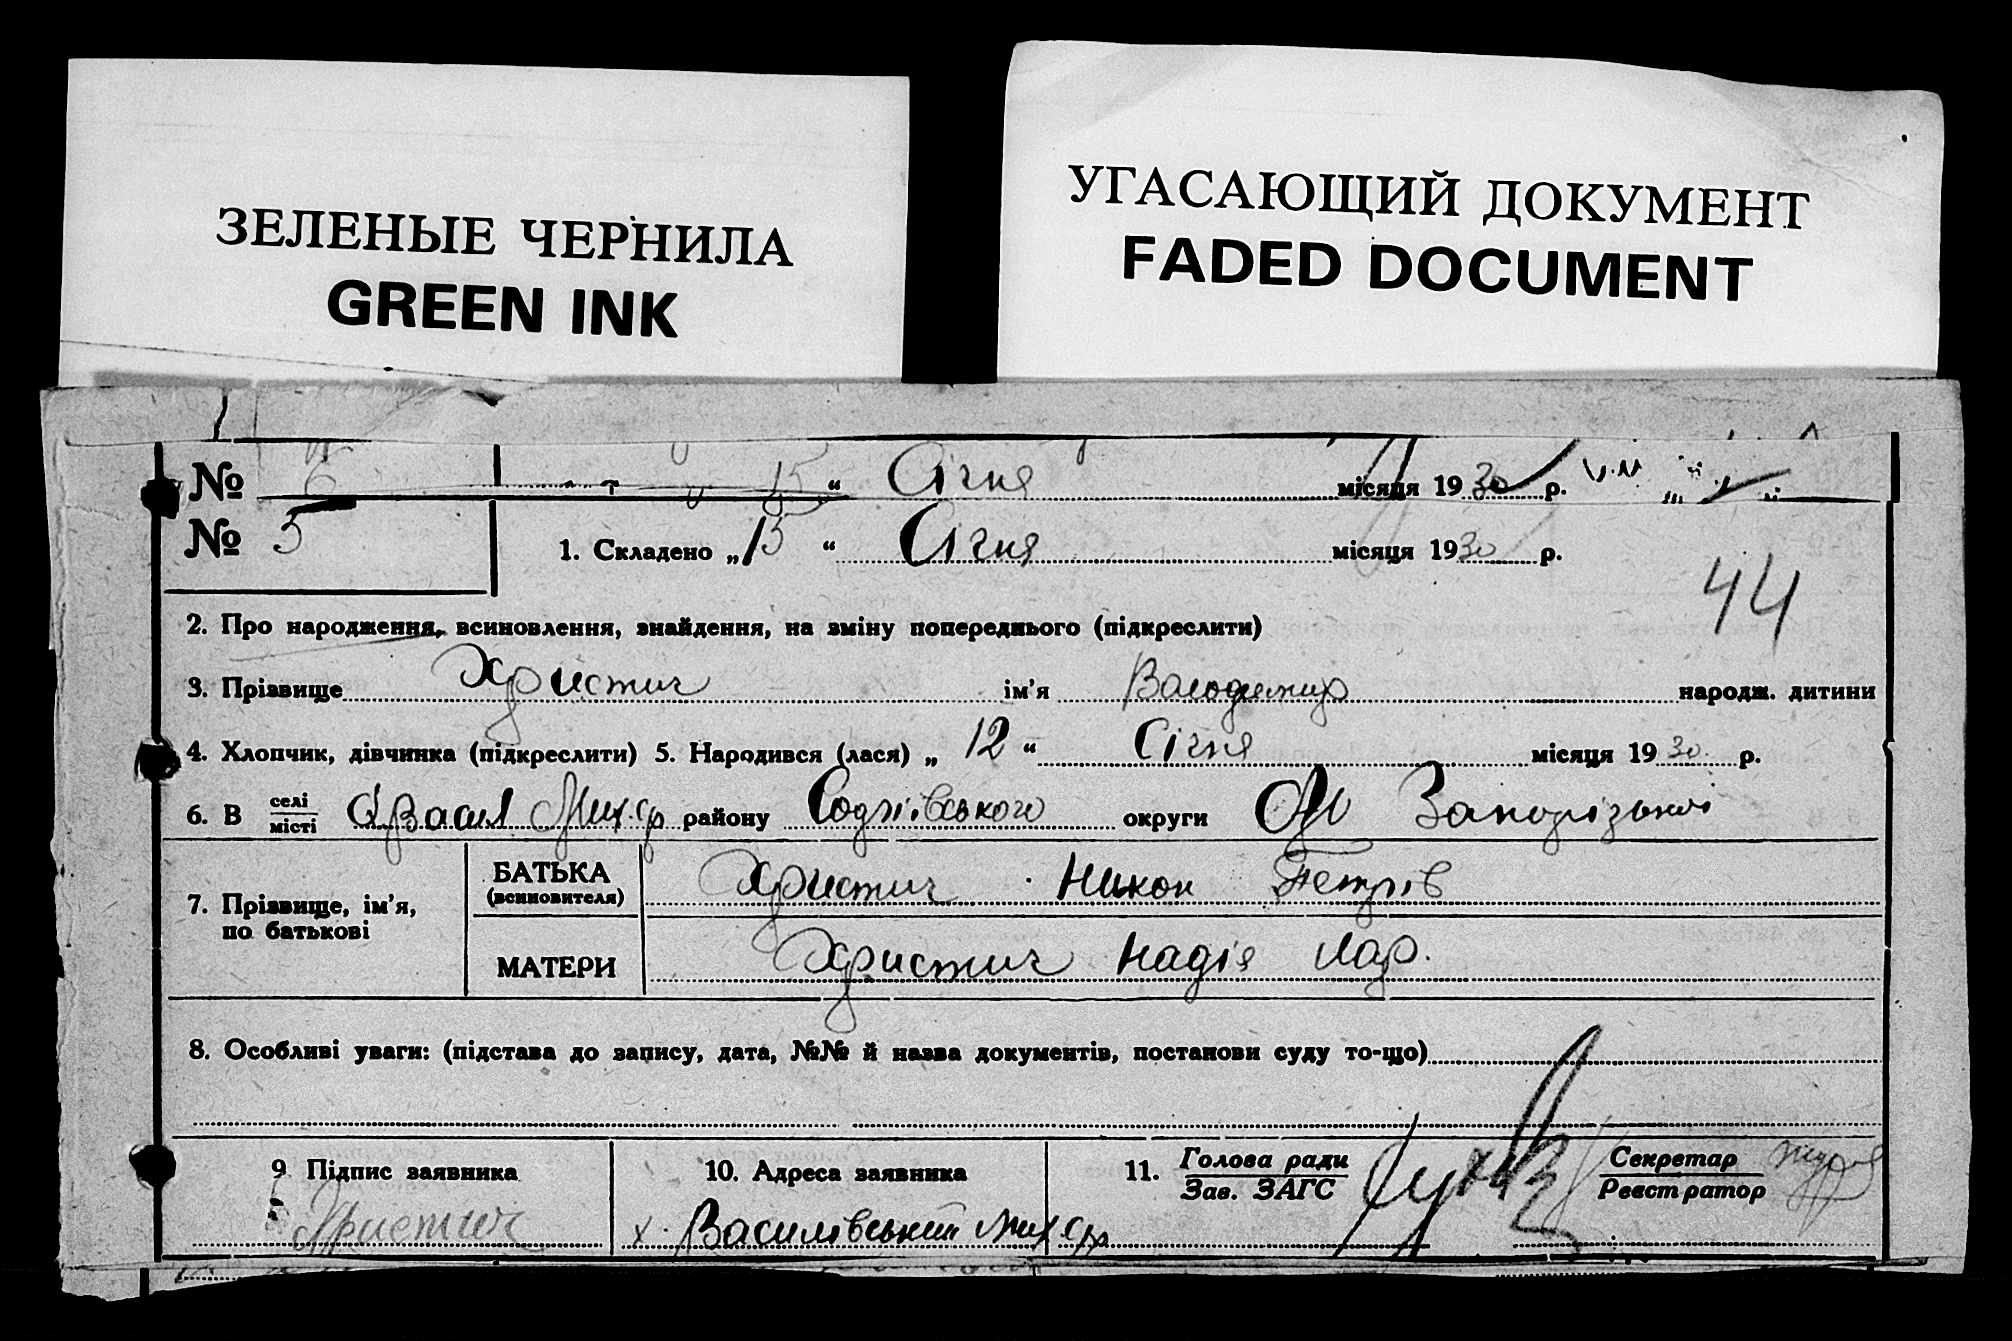 ЗЕЛЕНЫЕ ЧЕРНИЛА
GREEN INK
УГАСАЮЩИЙ ДОКУМЕНТ
FADED DOCUMENT
№ 6 15 “ Січня місяця 1930 р.
№ 5 1. Складено „15 “ Січня місяця 1930 р.
44
2. Про народження, всиновлення, знайдення, на зміну попереднього (підкреслити)
3. Прізвище Христич ім'я Володимир народж. дитини
4. Хлопчик, дівчинка (підкреслити) 5. Народився (лася) „ 12 “ Січня місяця 1930 р.
6. В селі
місті Васил Мих ср району округи Запорізької
7. Прізвище, ім'я,
по батькові
БАТЬКА
(всиновителя)
Христич Никон Петрів
МАТЕРИ
Христич Надія Лар.
8. Особливі уваги: (підстава до запису, дата, №№ й назва документів, постанови суду то-що)
9 Підпис заявника
Христич
10. Адреса заявника
х. Василівський Мих ср
11. Голова ради
Зав. ЗАГС
Секретар
Реєстратор